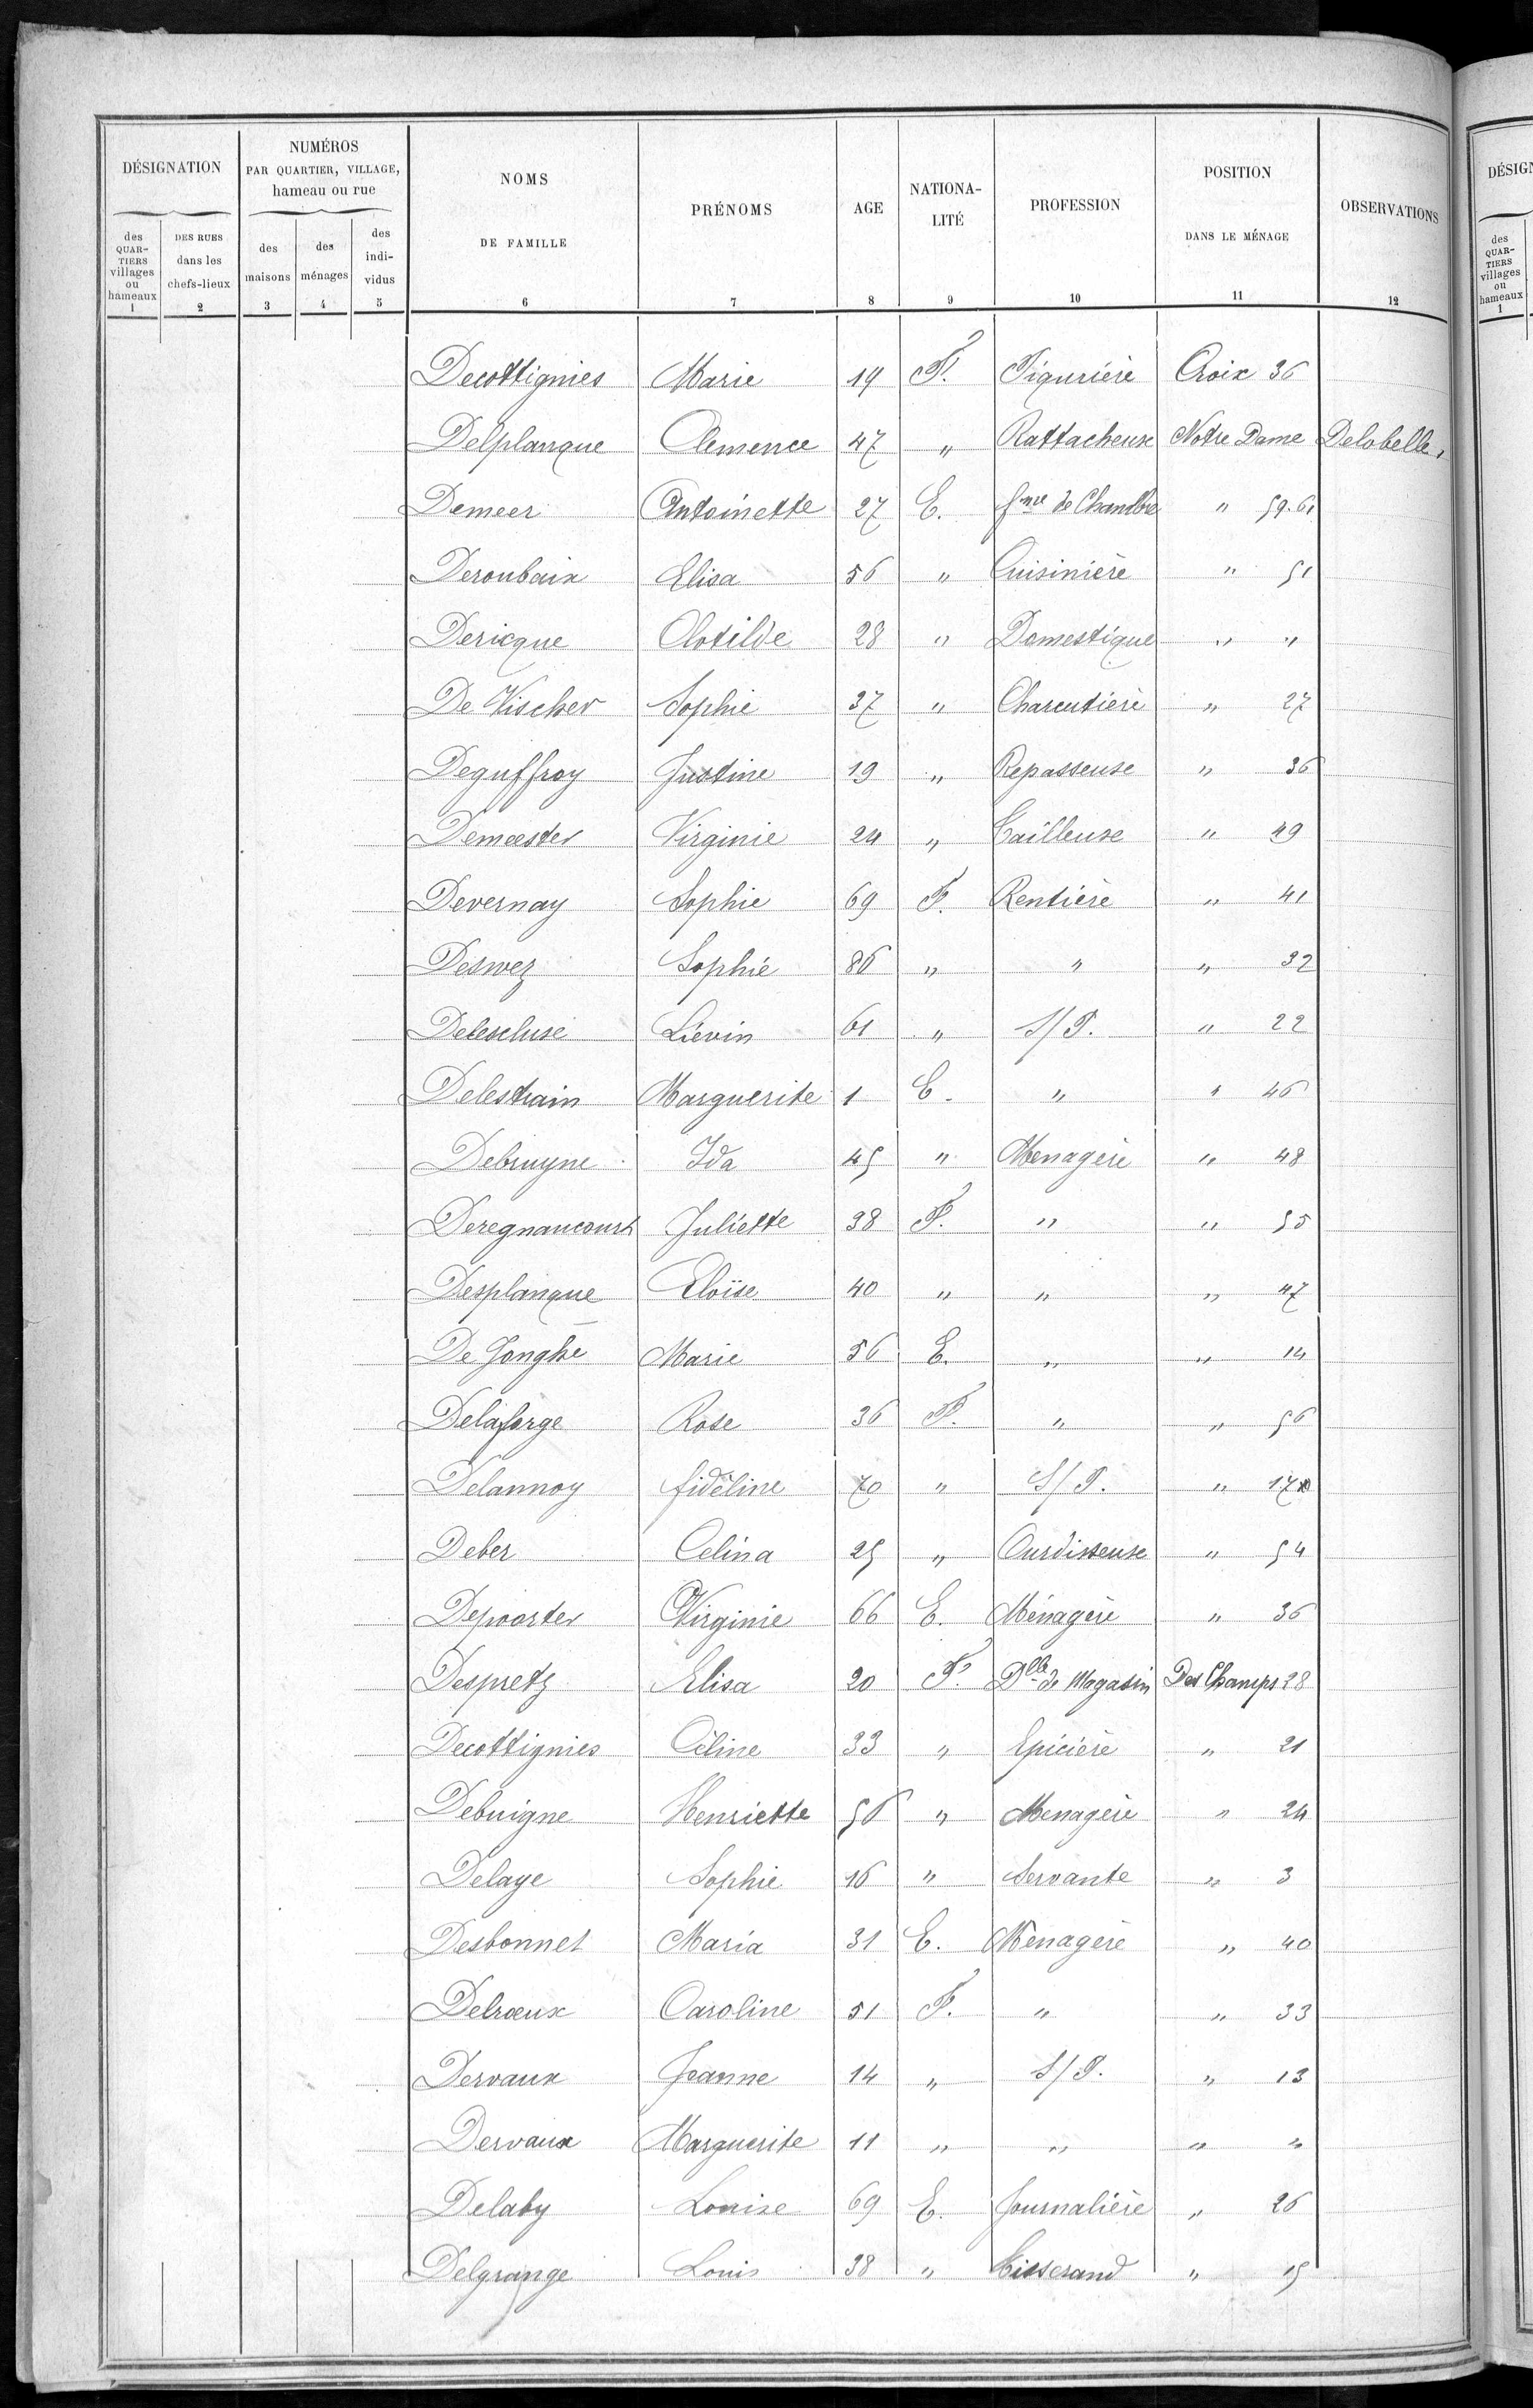 DÉSIGNATION
NUMÉROS
PAR QUARTIER, VILLAGE,
hameau ou rue
NOMS
DE FAMILLE
PRÉNOMS
AGE
NATIONA-
LITÉ
PROFESSION
POSITION
DANS LE MÉNAGE
OBSERVATIONS
des
QUAR-
TIERS
villages
ou
hameaux
DES RUES
dans les
chefs-lieux
des
maisons
des
ménages
des
indi-
vidus
1 2 3 4 5 6 7 8 9 10 11 12
Decottignies Marie 19 F. Piqurière Croix 36
Delplanque Clemence 47 " Rattacheuse Notre Dame Delobelle,
Demeer Antoinette 27 E. fme de Chambre " 59.61
Deroubaix Elisa 56 " Cuisinière " 51
Dericque Clotilde 28 " Domestique " "
De Vischer Sophie 37 " Charcutière " 27
Deguffroy Justine 19 " Repasseuse " 36
Demeester Virginie 24 " Tailleuse " 49
Devernay Sophie 69 F. Rentière " 41
Deswez Sophie 86 " " " 32
Delescluse Liévin 61 " S/P. " 22
Delestrain Marguerite 1 E. " " 46
Debruyne Ida 45 " Menagère " 48
Deregnaucourt Juliette 38 F. " " 55
Desplanque Eloïse 40 " " " 47
De Jonghe Marie 56 E. " " 14
Delaforge Rose 36 F. " " 56
Delannoy fidéline 70 " S/P. " 17
Deber Celina 25 " Ourdisseuse " 54
Depoorter Virginie 66 E. Ménagère " 36
Despretz Elisa 20 F. Dlle de Magasin Des Champs 28
Decottignies Céline 33 " Epicière " 21
Debuigne Henriette 56 " Menagère " 24
Delaye Sophie 16 " Servante " 3
Desbonnet Maria 31 E. Ménagère " 40
Delrœux Caroline 51 F. " " 33
Dervaux Jeanne 14 " S/P. " 13
Dervaux Marguerite 11 " " " "
Delaby Louise 69 E. Journalière " 26
Delgrange Louis 38 " Tisserand " 15
DÉSIGN
des
QUAR-
TIERS
villages
ou
hameaux
1